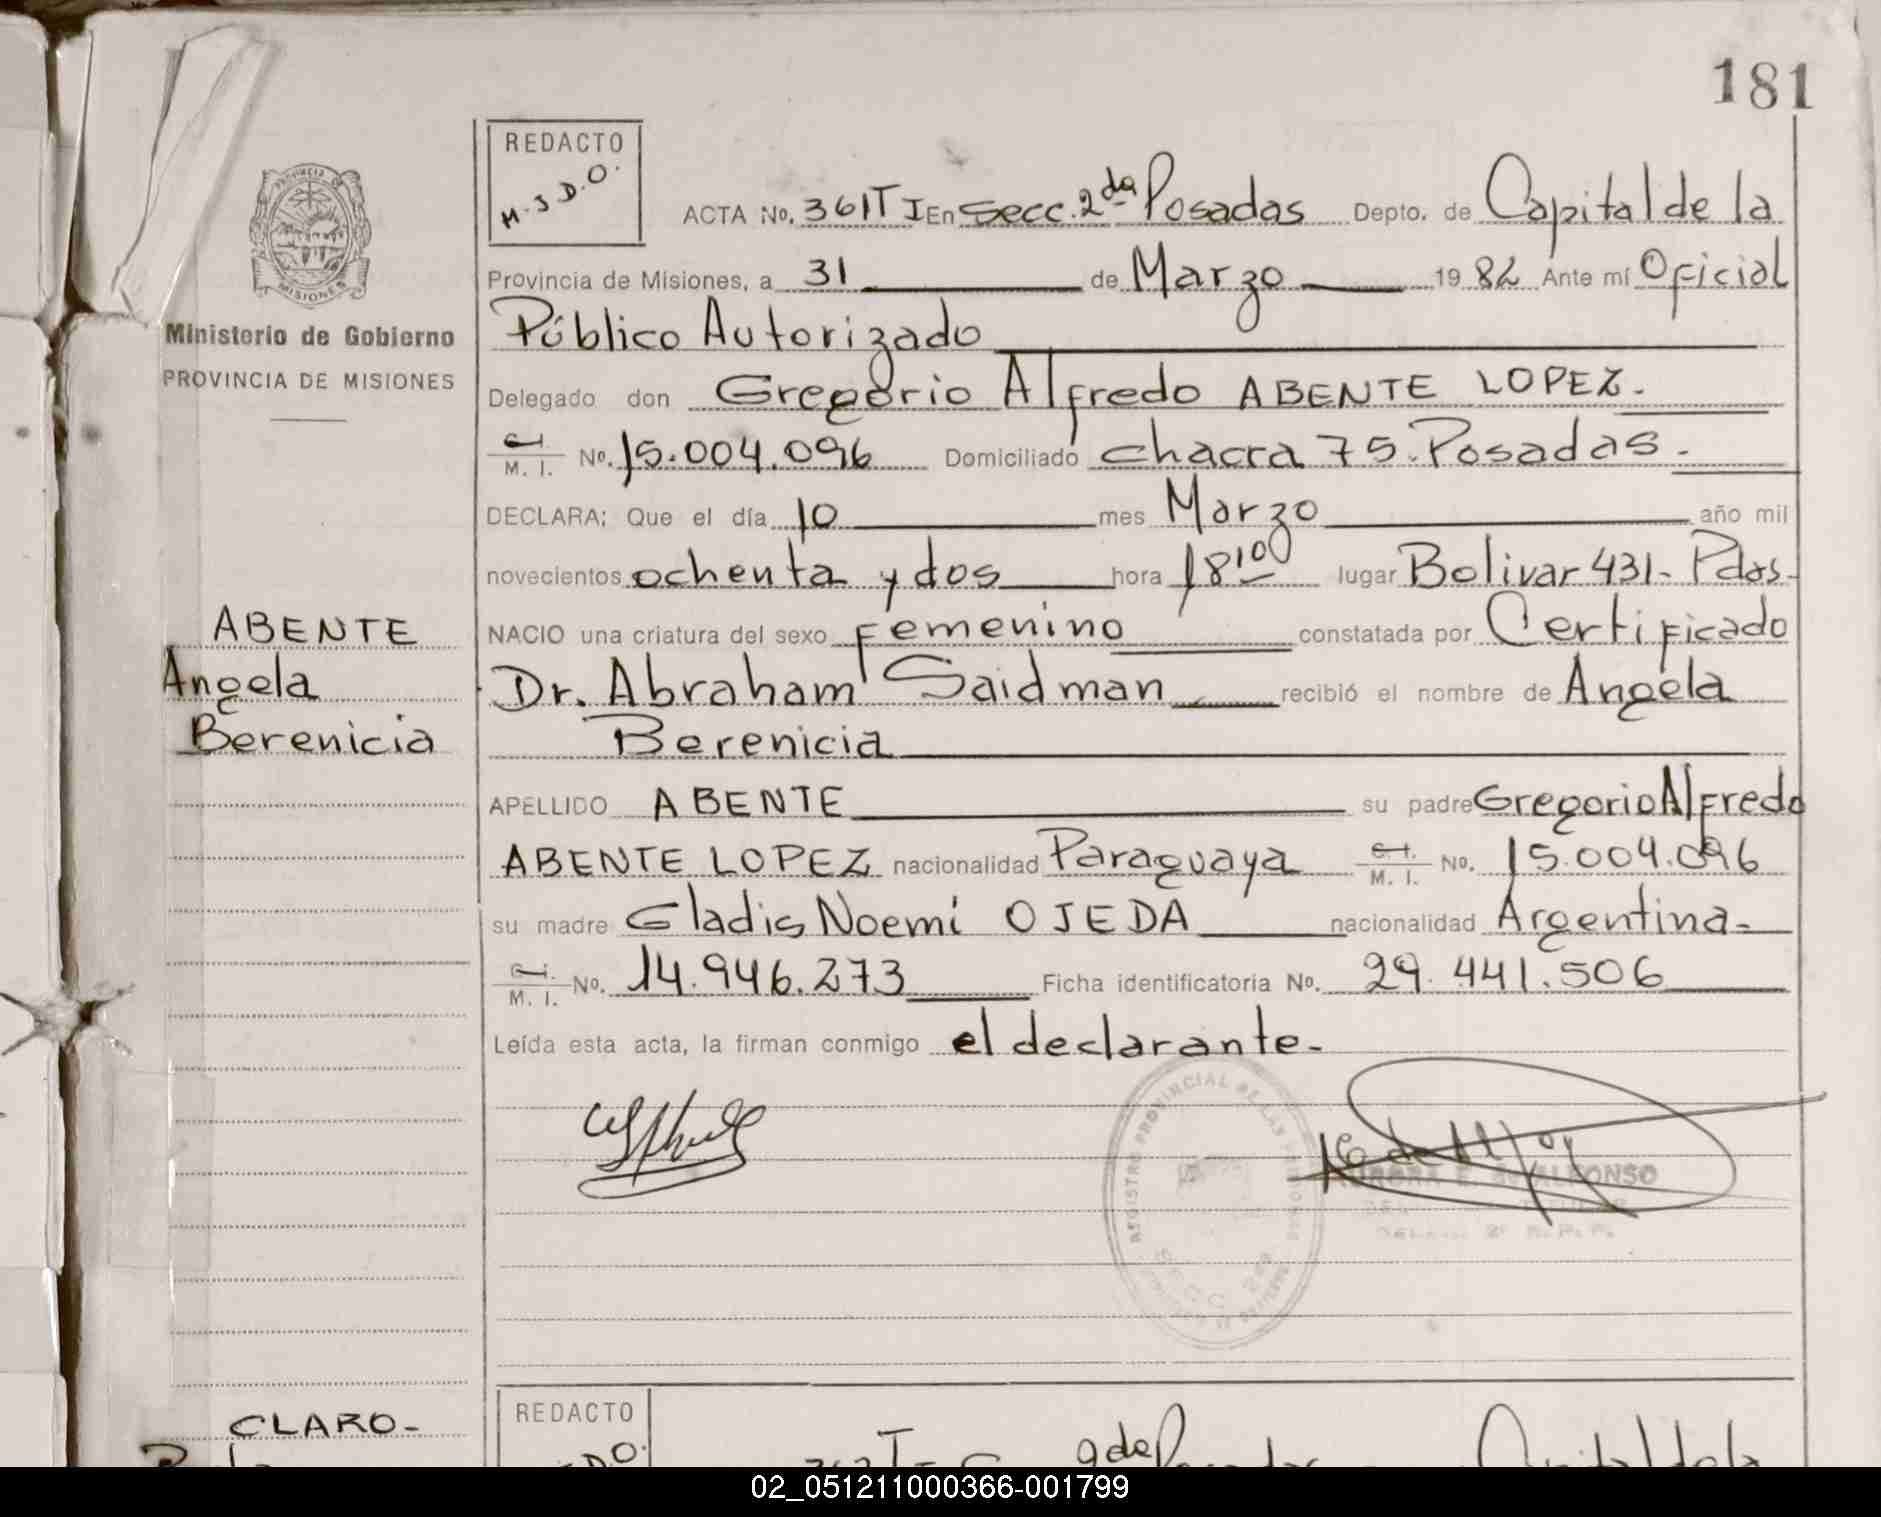 181
REDACTO
M.J.D.O.
PROVINCIA DE
MISIONES
Ministerio de Gobierno
PROVINCIA DE MISIONES
ACTA No. 361 T I En Secc. 2da Posadas Depto. de Capital de la
Provincia de Misiones, a 31 de Marzo 1982 Ante mí Oficial
Público Autorizado
Delegado don Gregorio Alfredo ABENTE LOPEZ.
C. I.
M. I. No. 15.004.096 Domiciliado chacra 75. Posadas.
DECLARA: Que el día 10 mes Marzo año mil
novecientos ochenta y dos hora 18,00 lugar Bolivar 431- Pdas-
NACIO una criatura del sexo Femenino constatada por Certificado
Dr. Abraham Saidman recibió el nombre de Angela
Berenicia
ABENTE
Angela
Berenicia
APELLIDO ABENTE su padre Gregorio Alfredo
ABENTE LOPEZ nacionalidad Paraguaya C. I. M. I. No. 15.004.096
su madre Gladis Noemí OJEDA nacionalidad Argentina-
C. I.
M. I. No. 14.946.273 Ficha identificatoria No. 29.441.506
Leída esta acta, la firman conmigo el declarante-
REGISTRO PROVINCIAL DE LAS PERSONAS
SECC. 2da
AURORA E. ALFONSO
CLARO-
REDACTO
02_051211000366-001799